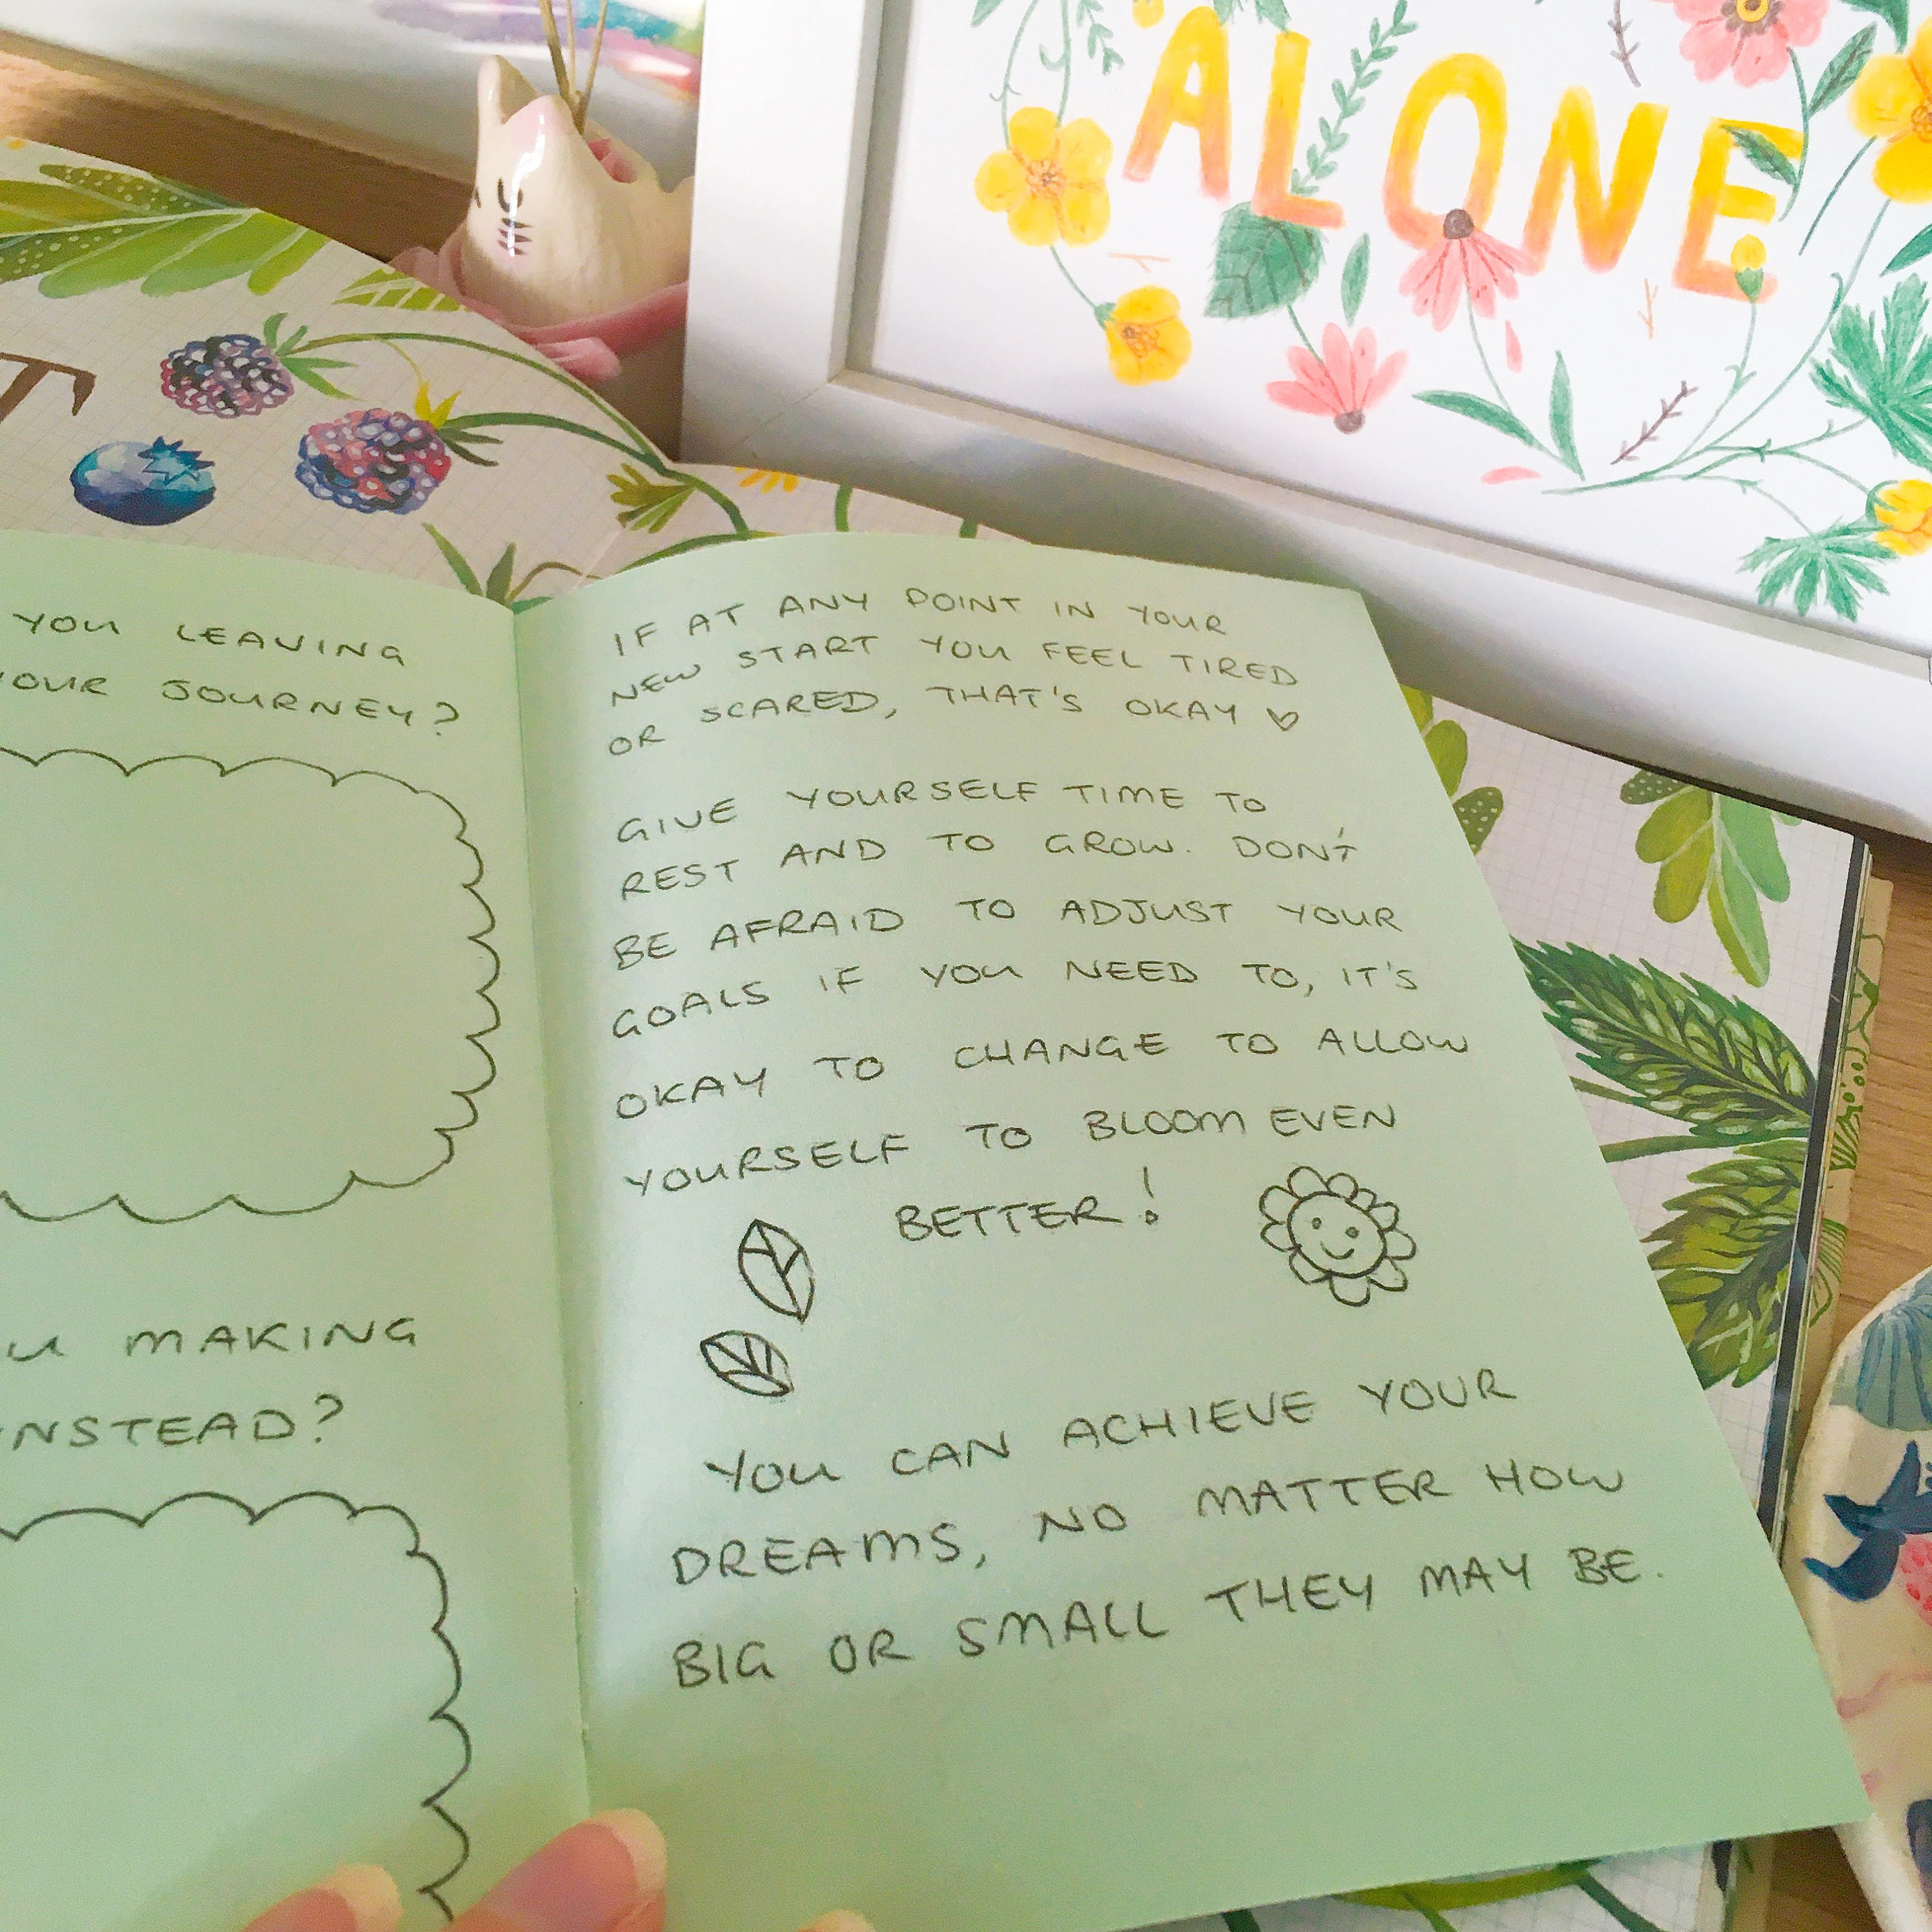 ALONE
T
YOU LEAVING
OUR JOURNEY?
U MAKING
INSTEAD?
IF AT ANY POINT IN YOUR
NEW START YOU FEEL TIRED
OR SCARED, THAT'S OKAY ♡
GIVE YOURSELF TIME TO
REST AND TO GROW. DON'T
BE AFRAID TO ADJUST YOUR
GOALS IF YOU NEED TO, IT'S
OKAY TO CHANGE TO ALLOW
YOURSELF TO BLOOM EVEN
BETTER!
YOU CAN ACHIEVE YOUR
DREAMS, NO MATTER HOW
BIG OR SMALL THEY MAY BE.